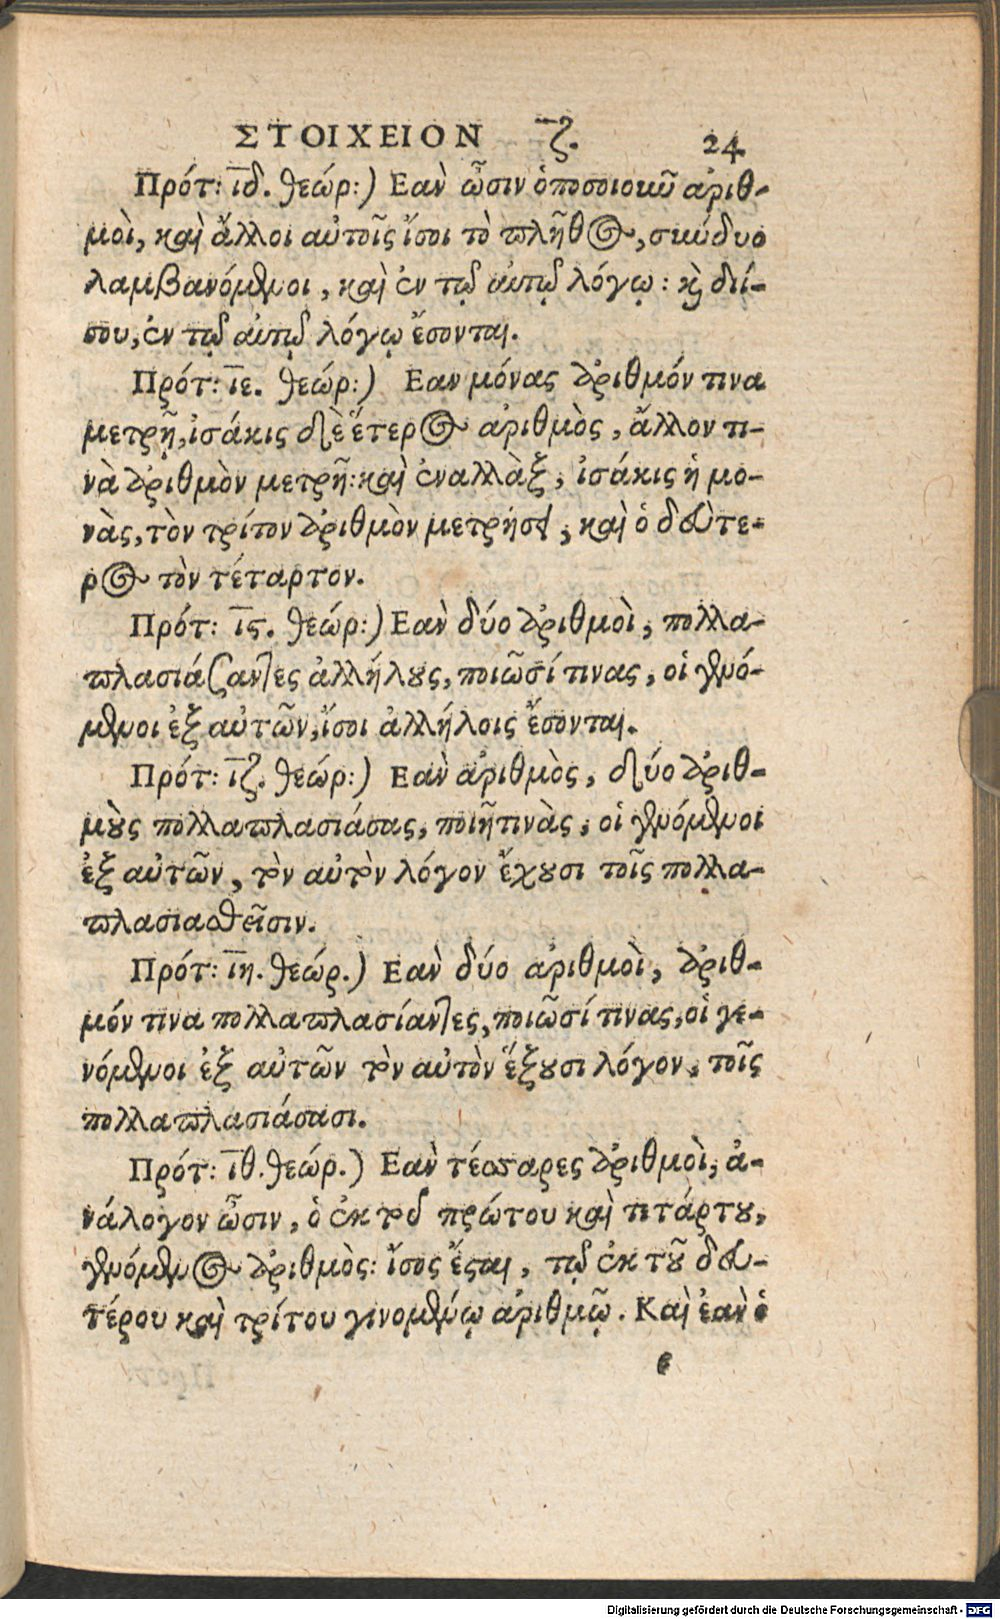 ΣΤΟΙΧΕΙΟΝ ζ. 24
Πρότ: ιδ. θεώρ:) Εαν ὦσιν ὁποσοιοιοῦ ἀριθ-
μοὶ, καὶ ἄλλοι αὐτοῖς ἴσοι τὸ πλῆθος, σιωύδυο
λαμβανόμενοι, καὶ ἐν τῷ αὐτῷ λόγῳ: καὶ διί-
σου, ἐν τῷ αὐτῷ λόγῳ ἔσονται.
Πρότ: ιε. θεώρ:) Εαν μόνας ἀριθμόν τινα
μετρῇ, ἰσάκις δὲ ἕτερος ἀριθμὸς, ἄλλον τι-
νὰ ἀριθμὸν μετρῇ: καὶ ἐναλλὰξ, ἰσάκις ἡ μο-
νὰς, τὸν τρίτον ἀριθμὸν μετρήσει, καὶ ὁ δεύτε-
ρος τὸν τέταρτον.
Πρότ: ις. θεώρ:) Εαν δύο ἀριθμοὶ, πολλα-
πλασιάζαντες ἀλλήλους, ποιῶσί τινας, οἱ γενό-
μενοι ἐξ αὐτῶν, ἴσοι ἀλλήλοις ἔσονται.
Πρότ: ιζ. θεώρ:) Εαν ἀριθμὸς, δύο ἀριθ-
μοὺς πολλαπλασιάσας, ποιῇ τινὰς, οἱ γενόμενοι
ἐξ αὐτῶν, τὸν αὐτὸν λόγον ἔχουσι τοῖς πολλα-
πλασιασθεῖσιν.
Πρότ: ιη. θεώρ.) Εαν δύο ἀριθμοὶ, ἀριθ-
μόν τινα πολλαπλασίαντες, ποιῶσί τινας, οἱ γε-
νόμενοι ἐξ αὐτῶν τὸν αὐτὸν ἕξουσι λόγον, τοῖς
πολλαπλασιάσασι.
Πρότ: ιθ. θεώρ.) Εαν τέσσαρες ἀριθμοὶ, ἀ-
νάλογον ὦσιν, ὁ ἐκ τοῦ πρώτου καὶ τετάρτου,
γενόμενος ἀριθμὸς: ἴσος ἔσται, τῷ ἐκ τοῦ δευ-
τέρου καὶ τρίτου γινομένῳ ἀριθμῷ. Καὶ ἐὰν ὁ
Digitalisierung gefördert durch die Deutsche Forschungsgemeinschaft - DFG